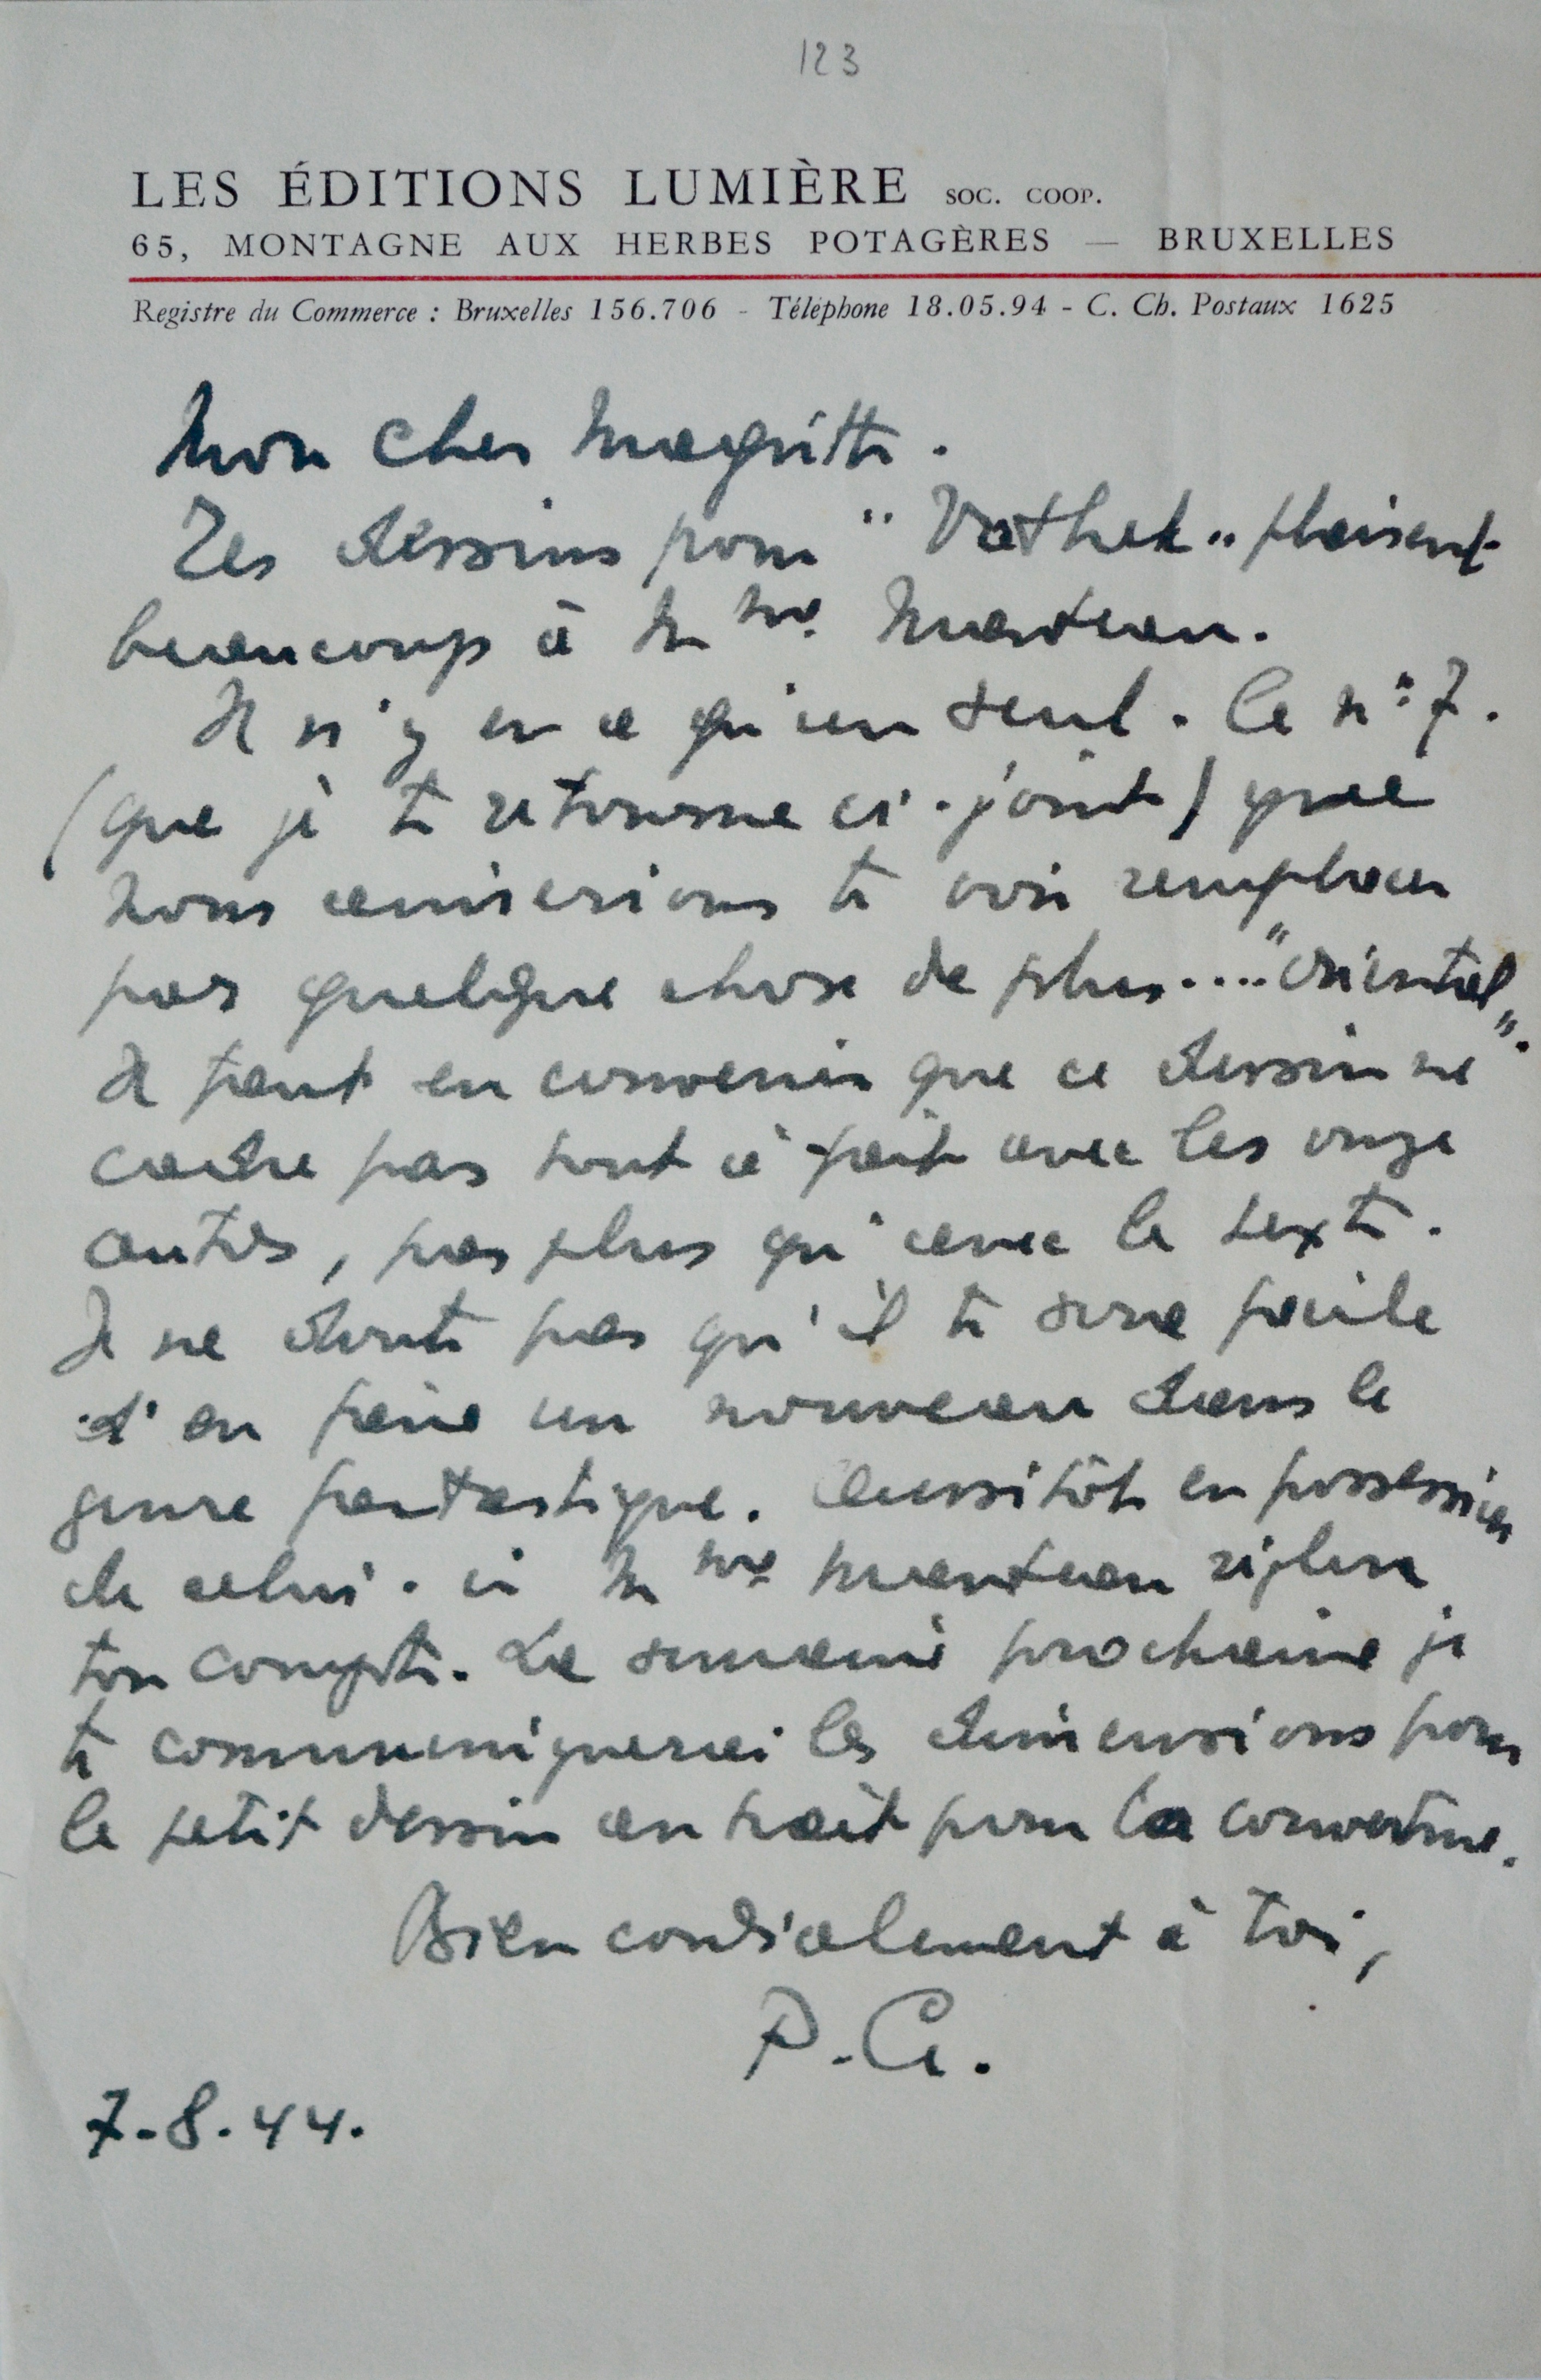 123
LES ÉDITIONS LUMIÈRE SOC. COOP.
65, MONTAGNE AUX HERBES POTAGÈRES — BRUXELLES
Registre du Commerce : Bruxelles 156.706 - Téléphone 18.05.94 - C. Ch. Postaux 1625
Mon cher Magritte.
Tes dessins pour "Vathek" plaisent
beaucoup à Mme Manteau.
Il n'y en a qu'un seul. Le n° 7.
(que je te retourne ci-joint) que
nous aimerions te voir remplacer
par quelque chose de plus...."oriental".
Il faut en convenir que ce dessin ne
cadre pas tout à fait avec les onze
autres, pas plus qu'avec le texte.
Je ne doute pas qu'il te sera facile
d'en faire un nouveau dans le
genre fantastique. Aussitôt en possession
de celui-ci Mme Manteau règlera
ton compte. La semaine prochaine je
te communiquerai les dimensions pour
le petit dessin au trait pour la couverture.
Bien cordialement à toi,
P. G.
7-8-44.